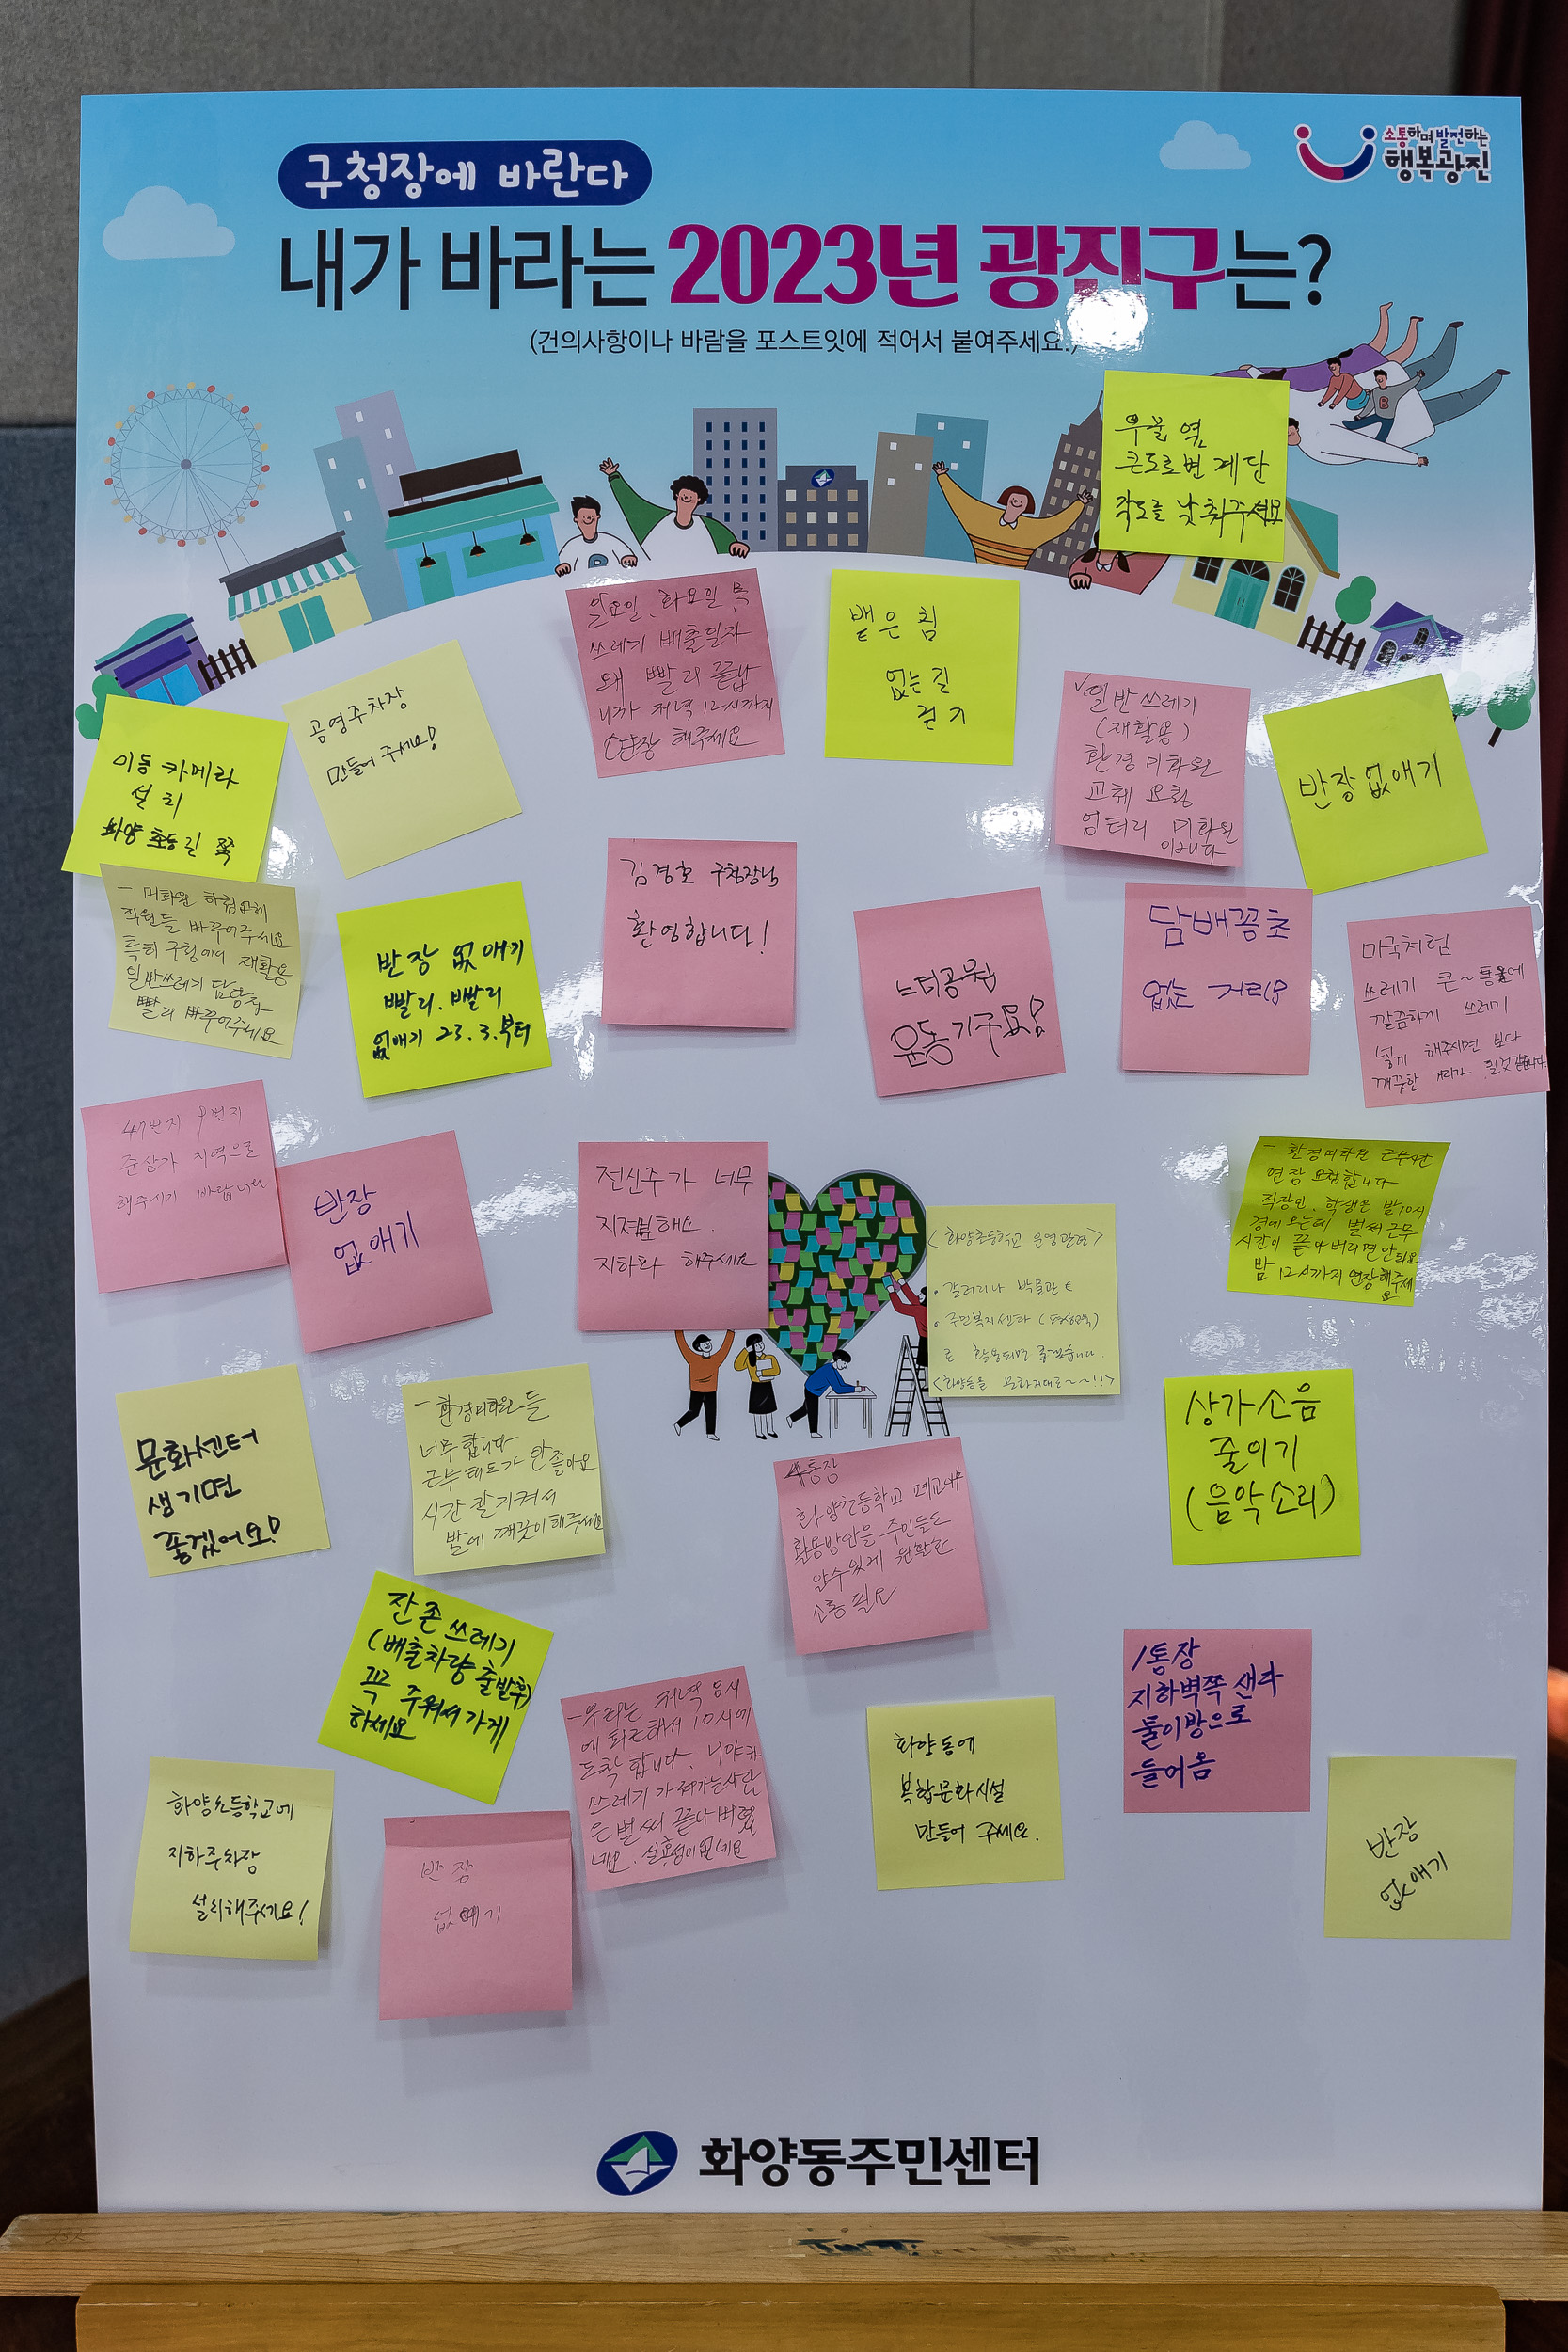 구청장에 바란다
소통하며 발전하는
행복광진
내가 바라는 2023년 광진구는?
(건의사항이나 바람을 포스트잇에 적어서 붙여주세요.)
큰도로변 계단
각도를 낮춰주세요
일요일, 화요일, 목
쓰레기 배출일자
왜 빨리 끝납
니까 저녁 12시까지
연장 해주세요
뱉은 침
없는 길
걷기
이동 카메라
설치
화양 초등 길 쪽
공영주차장
만들어 주세요!
✓일반쓰레기
(재활용)
환경미화원
교체 요청
엉터리 미화원
입니다
반장 없애기
- 미화원
직원들 바꾸어주세요
특히 구형이네 재활용
일반쓰레기 담당자
빨리 바꾸어주세요
반장 없애기
빨리. 빨리
없애기 23. 3. 부터
김경호 구청장님
환영합니다!
느티공원
운동기구요!
담배꽁초
없는 거리요
미국처럼
쓰레기 큰~통을에
깔끔하게 쓰레기
넣게 해주시면 보다
깨끗한 거리가 될것같습니다
준상가 지역으로
해주시기 바랍니다
반장
없애기
전신주가 너무
지저분해요.
지하화 해주세요
<화양초등학교 운영관련>
• 갤러리나 박물관
• 주민복지센타 (평생교육)
로 활용되면 좋겠습니다.
<화양동을 문화지대로~~!!!>
- 환경미화원 근무시간
연장 요청합니다
직장인, 학생은 밤10시
경에 오는데 벌써 근무
시간이 끝나버리면 안되요
밤 12시까지 연장해주세
요
문화센터
생기면
좋겠어요!
- 환경미화원들
너무합니다
근무태도가 안좋아요
시간 잘 지켜서
밤에 깨끗이 해주세요
상가소음
줄이기
(음악소리)
4통장
화양초등학교 폐교이후
활용방안을 주민들도
알수있게 원활한
소통 필요
잔존 쓰레기
(배출차량 출발후)
꼭 주워서 가게
하세요
- 우리는 저녁 8시
에 퇴근해서 10시에
도착합니다.
쓰레기 가져가는사람
은 벌써 끝나버렸
네요. 실효성이없네요
1통장
지하벽쪽
물이방으로
들어옴
화양동에
복합문화시설
만들어 주세요.
화양초등학교에
지하주차장
설치해주세요!
반장
없애기
반장
없애기
화양동주민센터